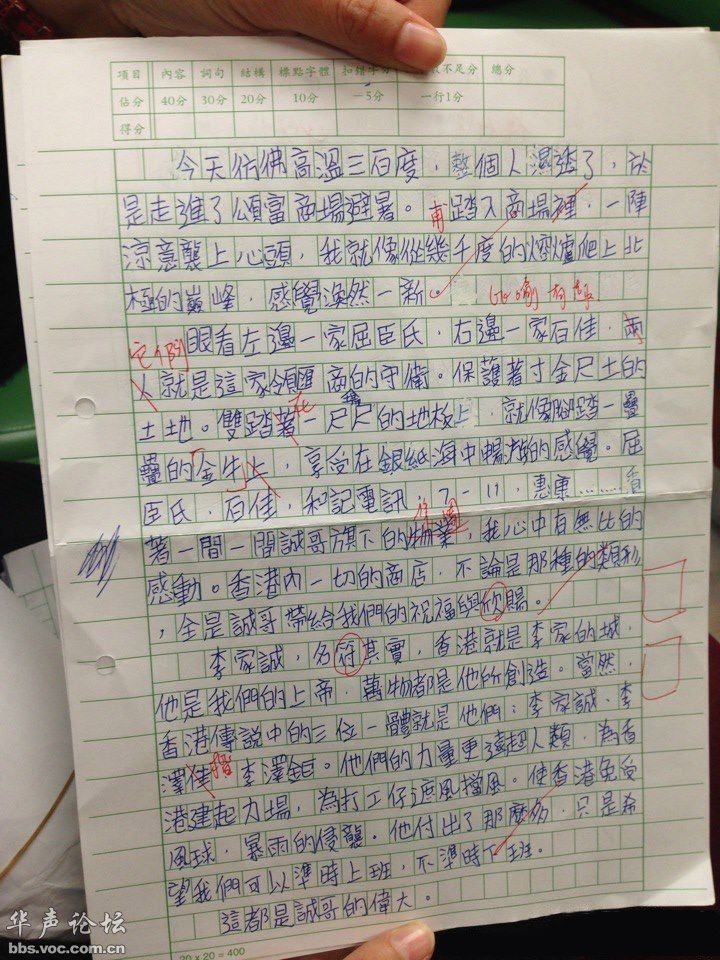 項目 內容 詞句 結構 標點字體 扣錯字分 不足分 總分
佔分 40分 30分 20分 10分 -5分 一行1分
得分
今天仿佛高溫三百度，整個人濕透了，於
是走進了頌富商場避暑。甫踏入商場裡，一陣
涼意襲上心頭，我就像從幾千度的熔爐爬上北
極的巔峰，感覺渙然一新。 比喻有趣
它們 眼看左邊一家屈臣氏，右邊一家石佳，兩
人就是這家領匯商的守衛。保護著寸金尺土的
土地。雙踏著一尺尺的地板上，就像腳踏一疊
疊的金牛上，享受在銀紙海中暢游的感覺。屈
臣氏，石佳，和記電訊，7-11，惠康………看
著一間一間誠哥旗下的物業，我心中有無比的
感動。香港內一切的商店，不論是那種的類形
，全是誠哥帶給我們的祝福與欣賜。
李家誠，名符其實，香港就是李家的城，
他是我們的上帝，萬物都是他所創造。當然，
香港傳說中的三位一體就是他們：李家誠、李
澤佳 楷 李澤鉅。他們的力量更遠超人類，為香
港建起力場，為打工仔遮風擋風。使香港免受
風球，暴雨的侵襲。他付出了那麼多，只是希
望我們可以準時上班，不準時下班。
這都是誠哥的偉大。
20 x 20 = 400
华声论坛
bbs.voc.com.cn